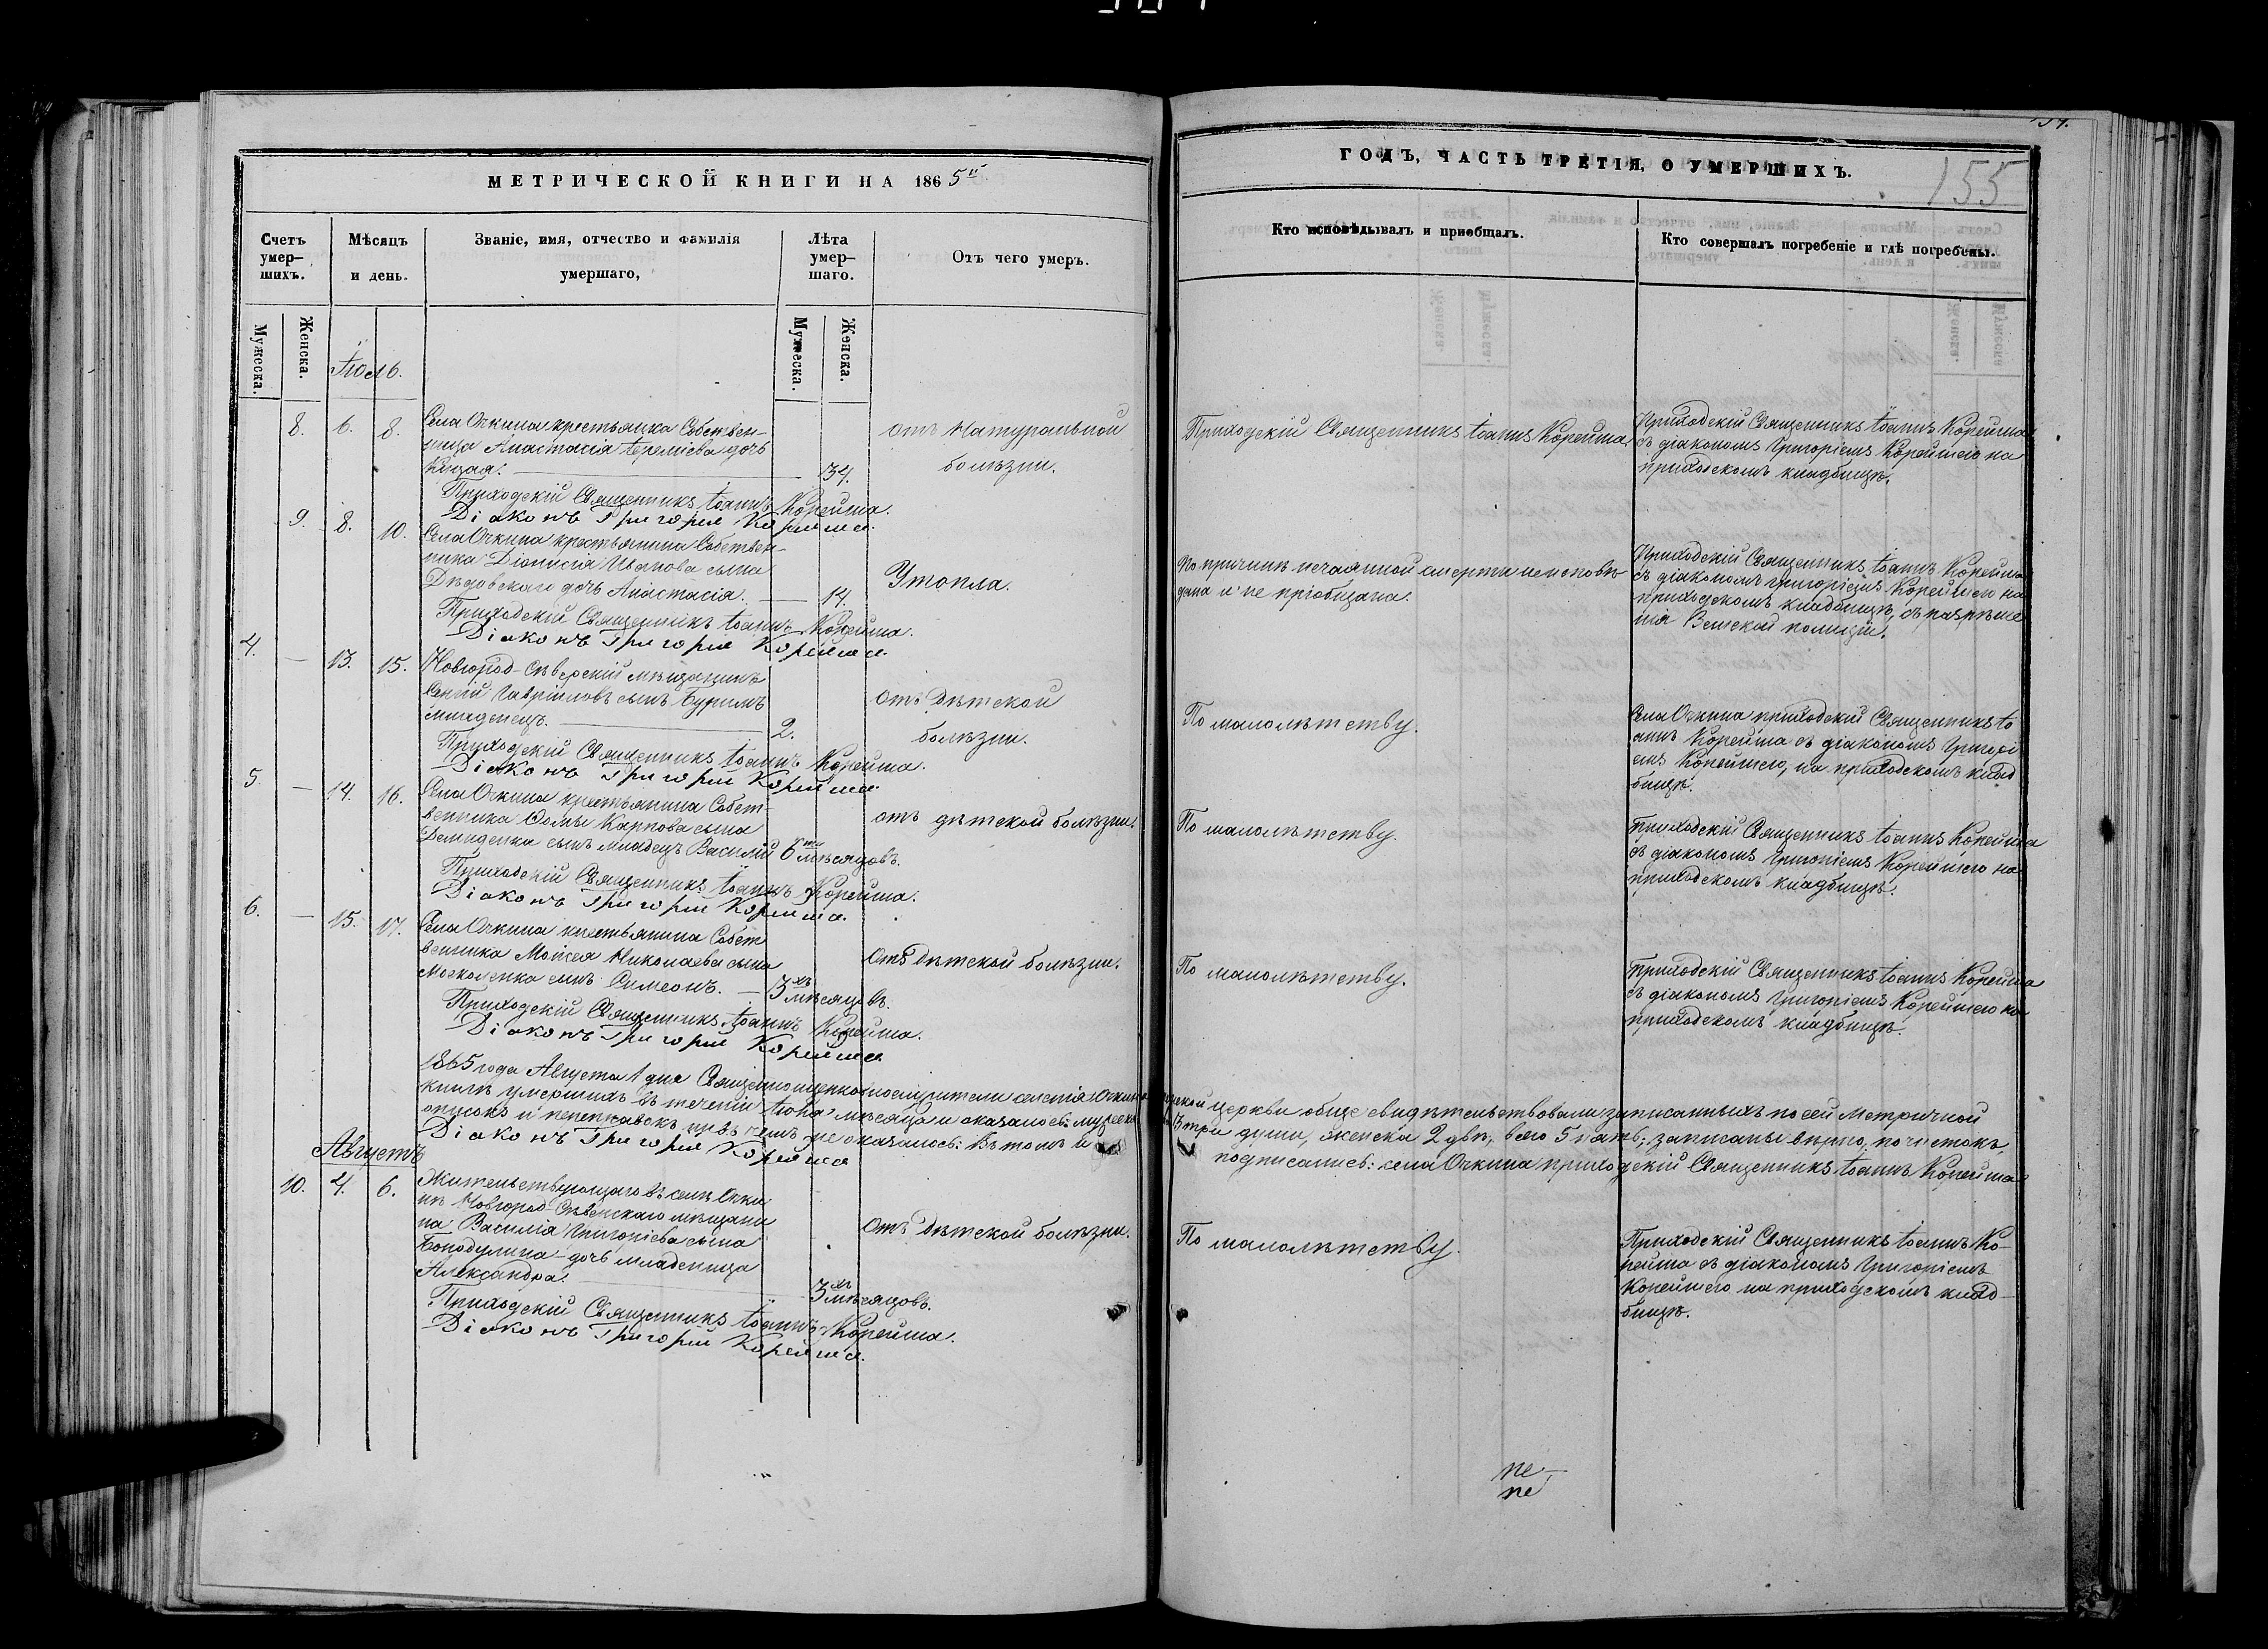 МЕТРИЧЕСКОЙ КНИГИ НА 1865й
Счетъ умер-шихъ.
Мѣсяцъ и день.
Званіе, имя, отчество и фамилія умершаго,
Лѣта умер-шаго.
Отъ чего умеръ.
Мужеска.
Женска.
Мужеска.
Женска.
Іюль.
8. 6. 8. Села Очкина крестьянка Собствен-
ница Анастасія Іереміева дочь
34.
отъ Натуральной
болѣзни.
Приходскій Священникъ Іоаннъ Корейша.
Діаконъ Григорій Корейша.
9. 8. 10. Села Очкина крестьянина Собствен-
ника Діонисія Иванова сына
Дѣдовскаго дочь Анастасія. — 14.
Утопла.
Приходскій Священникъ Іоаннъ Корейша.
Діаконъ Григорій Корейша.
4. — 13. 15. Новгород-Сѣверскій мѣщанинъ
Гавріиловъ сынъ Буримъ
младенецъ. — 2.
отъ Дѣтской
болѣзни.
Приходскій Священникъ Іоаннъ Корейша.
Діаконъ Григорій Корейша.
5. — 14. 16. Села Очкина крестьянина Собст-
венника Фомы Карпова сына
Демиденка сынъ младецъ Василій 6ти мѣсяцовъ.
отъ дѣтской болѣзни.
Приходскій Священникъ Іоаннъ Корейша.
Діаконъ Григорій Корейша.
6. — 15. 17. Села Очкина крестьянина Собст
венника Моисея Николаева сына
Москаленка сынъ Симеонъ. — 3хъ мѣсяцовъ.
отъ Дѣтской болѣзни.
Приходскій Священникъ Іоаннъ Корейша.
Діаконъ Григорій Корейша.
1865 года Августа 1 дня Священноцерковнослужители селенія Очкина
книгѣ умершихъ въ теченіи Іюля мѣсяца и оказалось: мужеска
описокъ и переправокъ ни въ чемъ не оказалось: Въ томъ и
Діаконъ Григорій Корейша
Августъ
10. 4. 6. Жительствующаго въ селѣ Очки-
нѣ Новгород-Сѣверскаго мѣщани
на Василія Григоріева сына
дочь младеница
Александра. 3хъ мѣсяцовъ.
отъ Дѣтской болѣзни.
Приходскій Священникъ Іоаннъ Корейша.
Діаконъ Григорій Корейша.
ГОДЪ, ЧАСТЬ ТРЕТІЯ, О УМЕРШИХЪ.
155
Кто исповѣдывалъ и пріобщалъ.
Кто совершалъ погребеніе и гдѣ погребены.
Приходскій Священникъ Іоаннъ Корейша.
Приходскій Священникъ Іоаннъ Корейша
съ діакономъ Григоріемъ Корейшею на
приходскомъ кладбищѣ.
По причинѣ нечаянной смерти неисповѣ
дана и не пріобщена.
Приходскій Священникъ Іоаннъ Корейша
съ діакономъ Григоріемъ Корейшею на
приходскомъ кладбищѣ, съ разрѣше
нія Земской полиціи.
По малолѣтству.
Села Очкина приходскій Священникъ Іо
аннъ Корейша съ діакономъ Григорі
емъ Корейшею, на приходскомъ клад
бищѣ.
По малолѣтству.
Приходскій Священникъ Іоаннъ Корейша
съ діакономъ Григоріемъ Корейшею на
приходскомъ кладбищѣ.
По малолѣтству.
Приходскій Священникъ Іоаннъ Корейша
съ діакономъ Григоріемъ Корейшею на
приходскомъ кладбищѣ.
церкви обще свидѣтельствовали записанныхъ по сей Метричной
три души, женска 2 двѣ, всего 5 пять; записаны вѣрно, почистокъ,
подписались: села Очкина приходскій Священникъ Іоаннъ Корейша
По малолѣтству.
Приходскій Священникъ Іоаннъ Ко-
рейша съ діакономъ Григоріемъ
Корейшею на приходскомъ клад-
бищѣ.